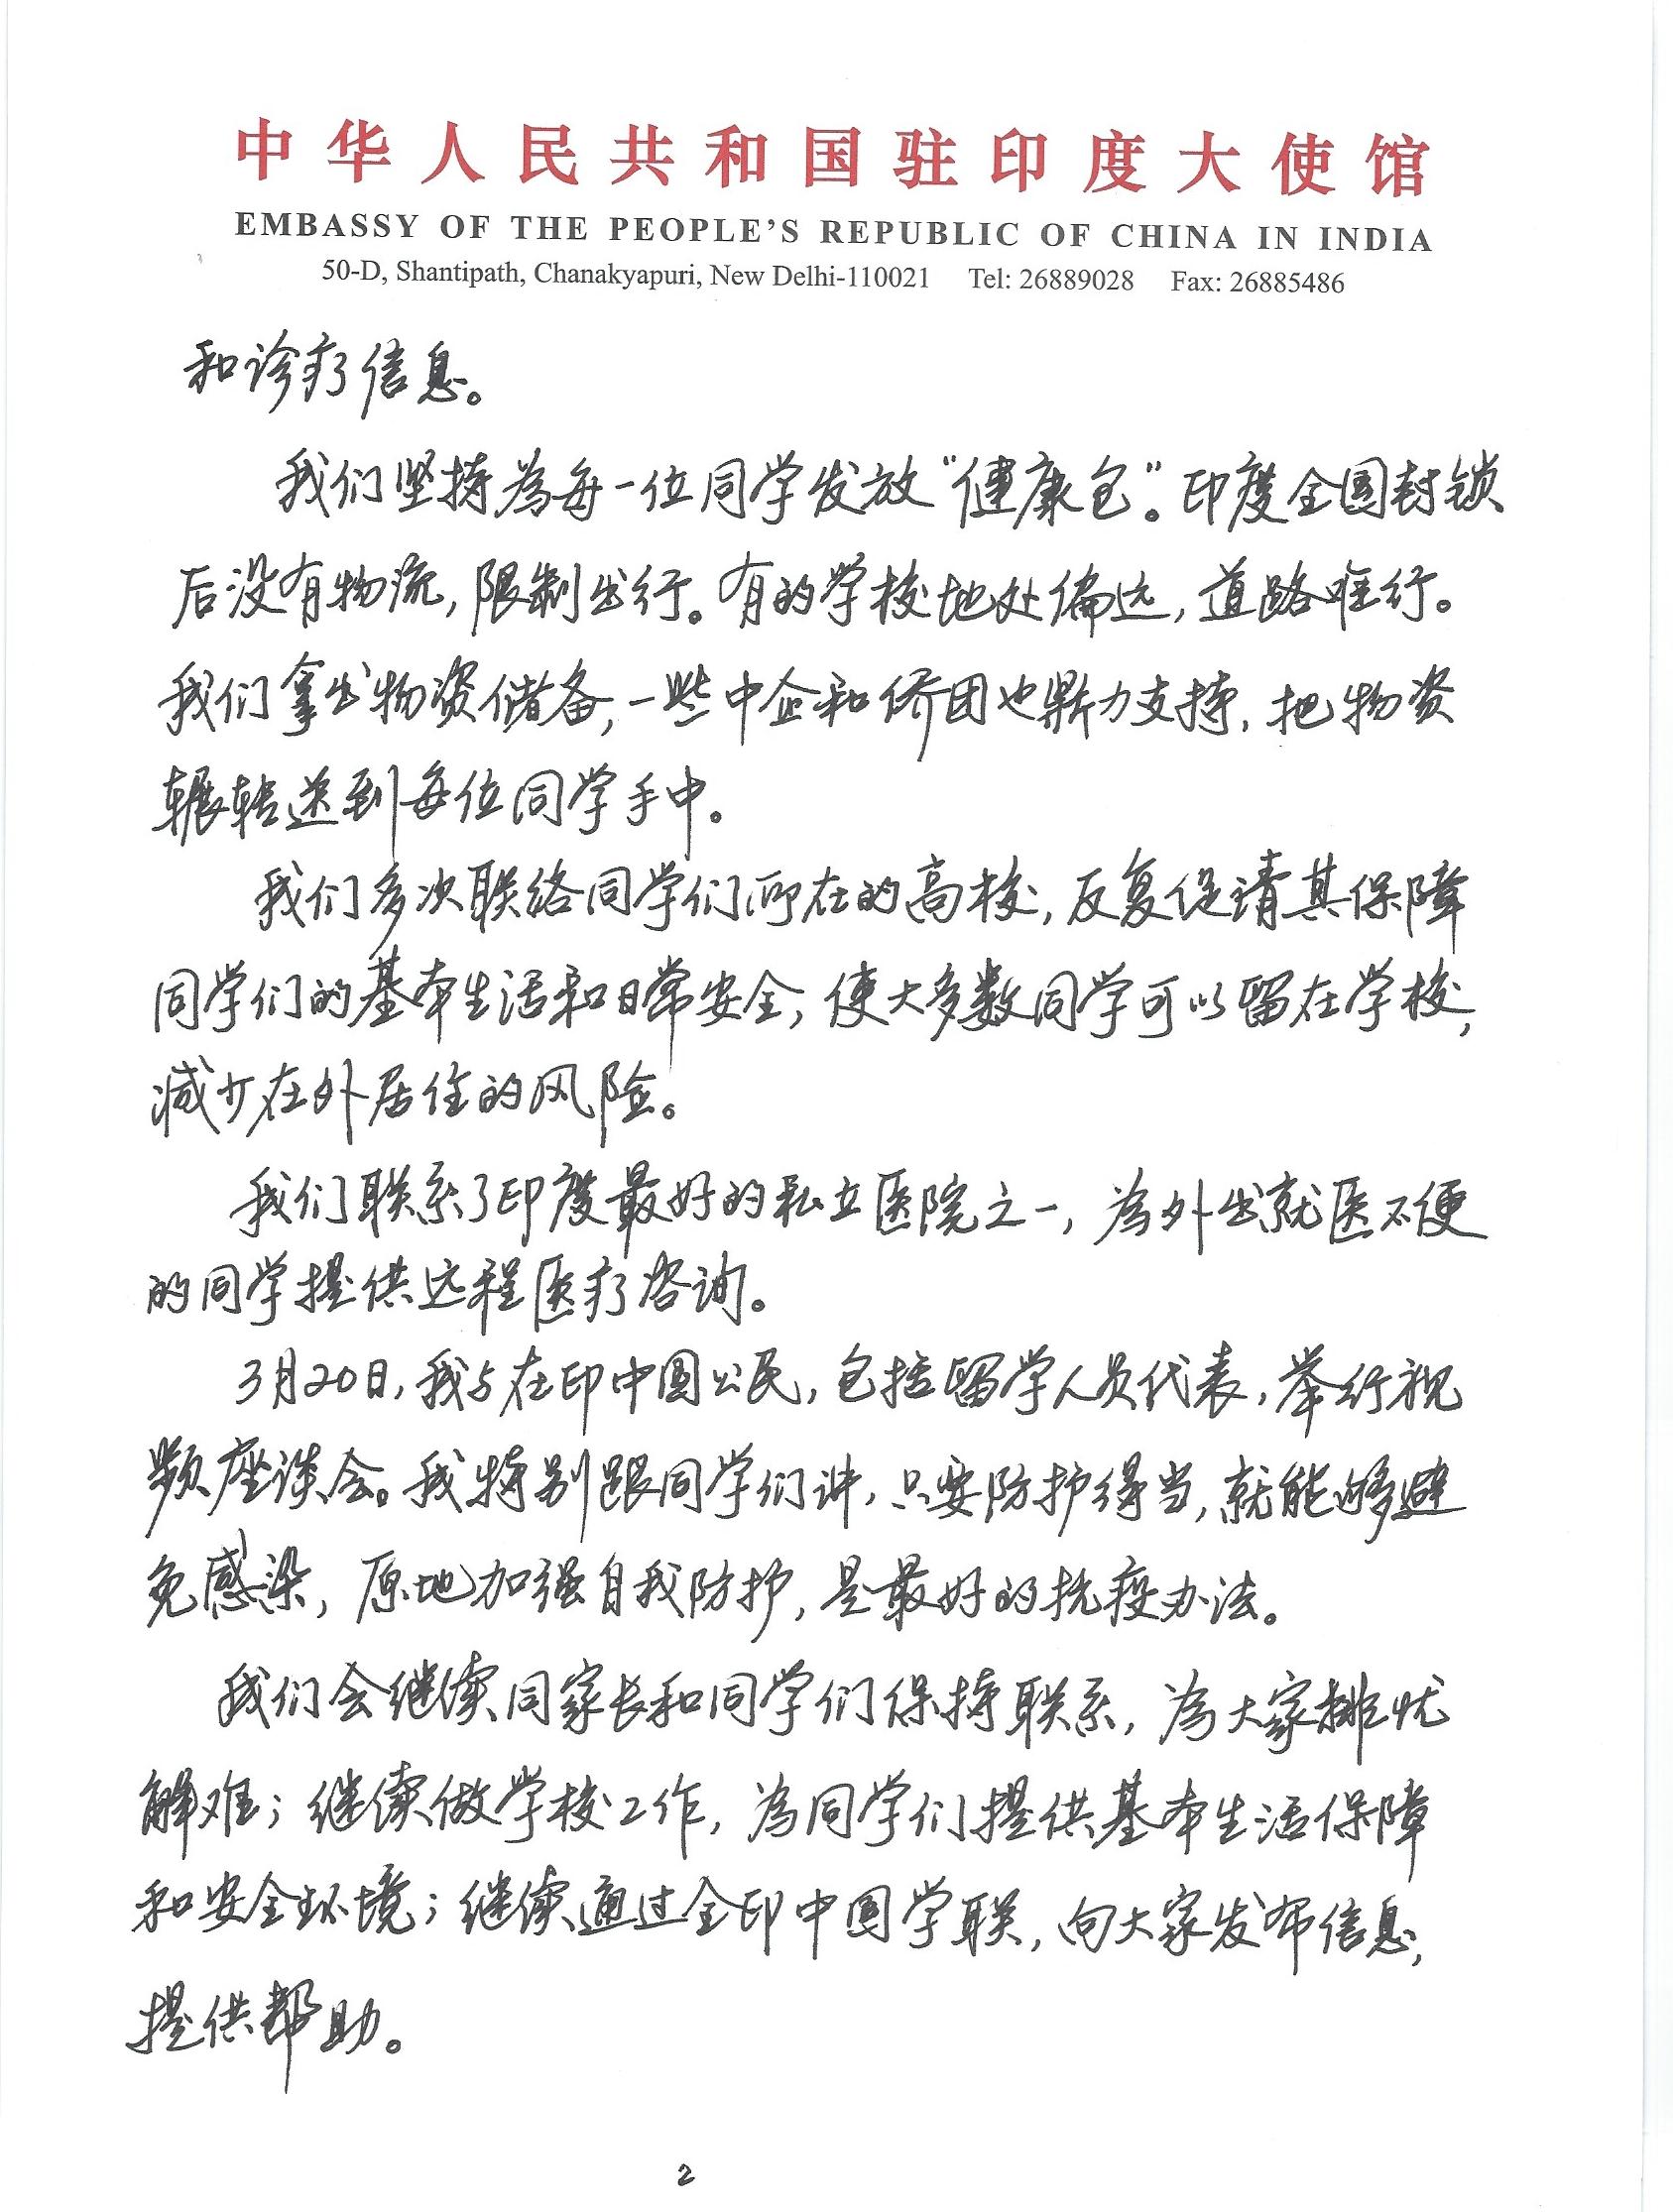 中华人民共和国驻印度大使馆
EMBASSY OF THE PEOPLE'S REPUBLIC OF CHINA IN INDIA
50-D, Shantipath, Chanakyapuri, New Delhi-110021 Tel: 26889028 Fax: 26885486
和诊疗信息。
我们坚持为每一位同学发放“健康包”。印度全国封锁
后没有物流,限制出行。有的学校地处偏远,道路难行。
我们拿出物资储备,一些中企和侨团也鼎力支持,把物资
辗转送到每位同学手中。
我们多次联络同学们所在的高校,反复促请其保障
同学们的基本生活和日常安全,使大多数同学可以留在学校,
减少在外居住的风险。
我们联系了印度最好的私立医院之一,为外出就医不便
的同学提供远程医疗咨询。
3月20日,我与在印中国公民,包括留学人员代表,举行视
频座谈会。我特别跟同学们讲,只要防护得当,就能够避
免感染,原地加强自我防护,是最好的抗疫办法。
我们会继续同家长和同学们保持联系,为大家排忧
解难;继续做学校工作,为同学们提供基本生活保障
和安全环境;继续通过全印中国学联,向大家发布信息,
提供帮助。
2